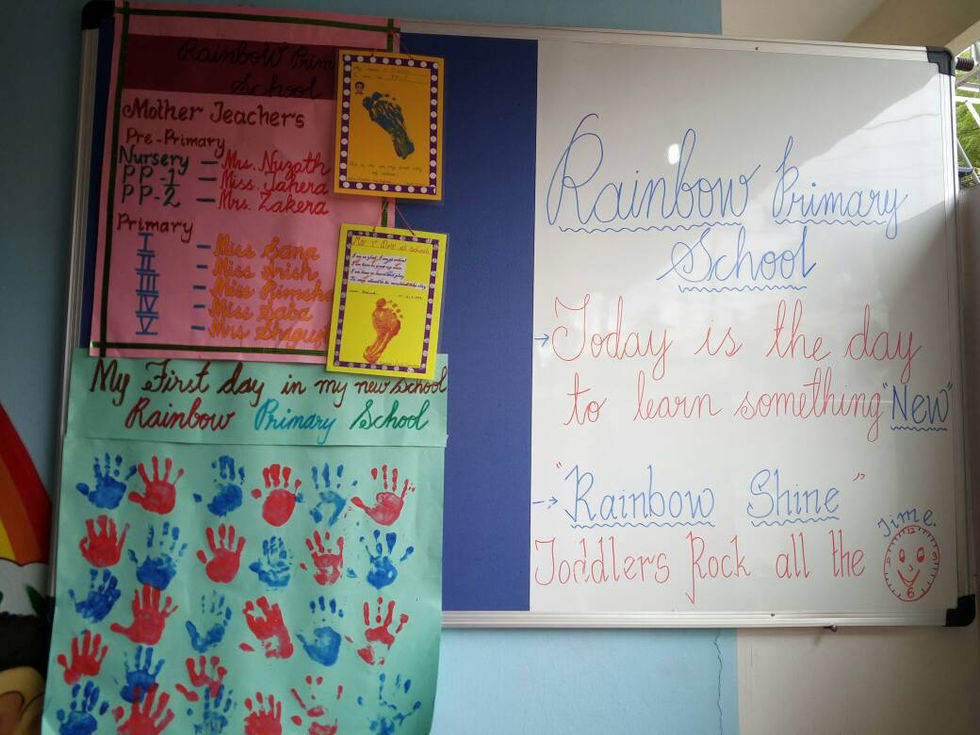 Rainbow Prim
School
Mother Teachers
Pre-Primary
Nursery – Mrs. Nuzath
PP-1 – Miss. Tahera
PP-2 – Mrs. Zakera
Primary
I – Miss Sana
II – Miss Arish
III – Miss Rimsha
IV – Miss Saba
V – Mrs
My 1st day at School
My First day in my new School
Rainbow Primary School
Rainbow Primary
School
→ Today is the day
to learn something "New"
→ "Rainbow Shine"
Toddlers Rock all the
Time.
12
3
6
9